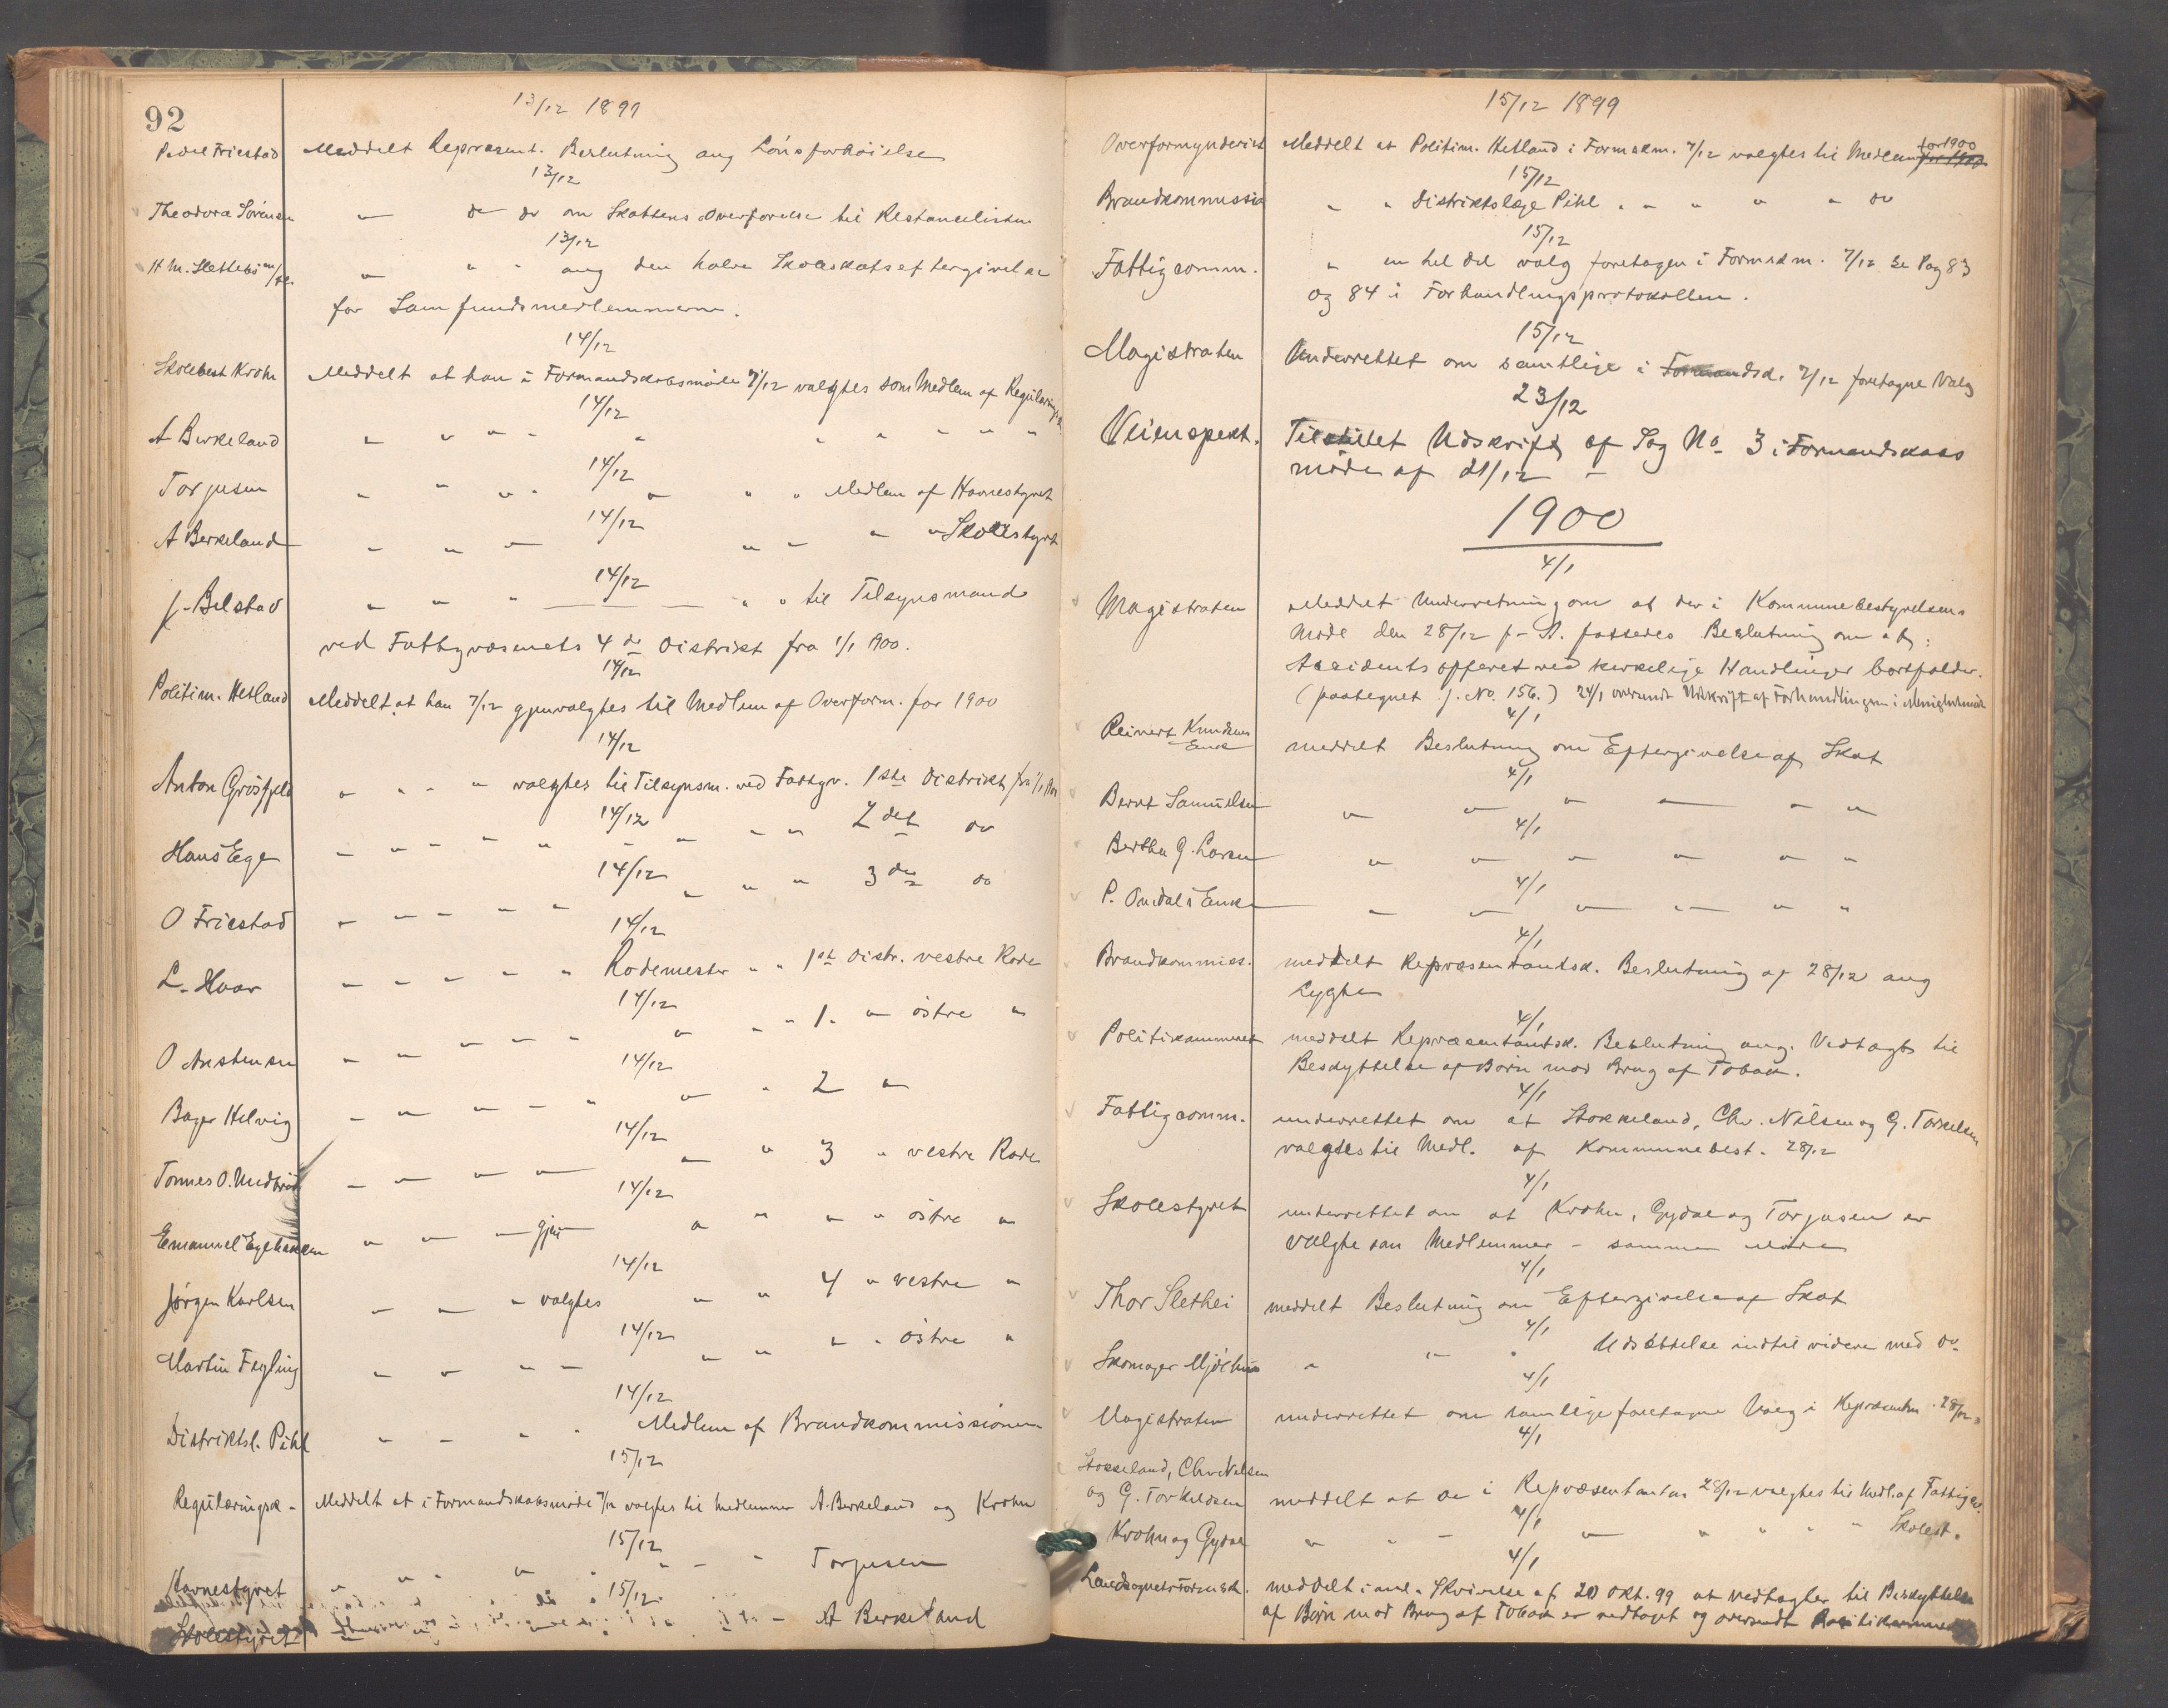 92
13/12 1899
Peder Friestad Meddelt Repræsent. Beslutning ang Lönsforhöielse
13/12
Theodora Sörensen " do do om Skattens Overförelse til Restancelisten
13/12
H M. Slettebö " " " ang den halve Skoleskats eftergivelse
for Samfundsmedlemmerne.
14/12
Skolebest Krohn Meddelt at han i Formandskabsmöde 7/12 valgtes som Medlem af
14/12
A Berkeland " " " " " " " " " "
14/12
Torjusen " " " " " " " Medlem af Havnestyret
14/12
A Berkeland " " " " " " " Skolestyret
14/12
J. Bilstad " " " — " " til Tilsynsmand
ved Fattigvæsenets 4de Distrikt fra 1/1 1900.
14/12
Politim. Hetland Meddelt at han 7/12 gjenvalgtes til Medlem af Overform. for 1900
14/12
Anton Grösfjeld " " " " valgtes til Tilsynsm. ved Fattigv. 1ste Distrikt fra 1/1
14/12
Hans Ege " " " " " " " " 2det do
14/12
O Friestad " " " " " " " " 3die do
14/12
L. Hvar " " " " " Rodemester " " 1ste Distr. vestre Rode
14/12
O Anstensen " " " " " " " " 1. " östre "
14/12
Bager Helvig " " " " " " " 2 "
14/12
Tönnes O. " " " " " " 3 " vestre Rode
14/12
Emanuel " " " gjen " " " " östre "
14/12
Jörgen Karlsen " " " valgtes " " 4 " vestre "
14/12
Martin Fegling " " " " " " " " östre "
14/12
Distriktsl. Pihl " " " " Medlem af Brandkommissionen
15/12
Reguleringsk - Meddelt at i Formandskabsmöde 7/12 valgtes til Medlemmer A. Berkeland og Krohn
15/12
Havnestyret " " " " " " " Torjusen
15/12
Skolestyret " " " " A Berkeland
15/12 1899
Overformynderiet Meddelt at Politim. Hetland i Formskm. 7/12 valgtes til Medlem for 1900
15/12
Brandkommissio " " Distriktslæge Pihl " " " " " do
15/12
Fattigcomm. " en hel del valg foretagen i Formskm. 7/12 se Pag 83
og 84 i Forhandlingsprotokollen.
15/12
Magistraten Underrettet om samtlige i Formandsk. 7/12 foretagne Valg
23/12
Veiinspekt. Tilstillet Udskrift af Sag No 3 i Formandskabs
möde af 21/12 —
1900
4/1
Magistraten Meddelt Underretning om at der i Kommunebestyrelsens
Möde den 28/12 f. A. fattedes Beslutning om at:
Accidentsofferet ved kirkelige Handlinger bortfalder.
(paategnet J. No. 156.) 24/1 oversendt Udskrift af Forhandlingen i
4/1
Reinert Knudsens Enke meddelt Beslutning om Eftergivelse af Skat
4/1
Bernt Samuelsen " " " " " "
4/1
Berthe G. Larsen " " " " " "
4/1
P. Omdals Enke " " " " " "
4/1
Brandkommiss. meddelt Repræsentantsk. Beslutning af 28/12 ang
Lygter
4/1
Politikammeret meddelt Repræsentantsk. Beslutning ang. Vedtægt til
Beskyttelse af Börn mod Brug af Tobak.
4/1
Fattigcomm. underrettet om at Stokkeland, Chr. Nilsen og G. Torkelsen
valgtes til Medl. af Kommunebest. 28/12
4/1
Skolestyret underrettet om at Krohn, Gydae og Torjusen er
valgte som Medlemmer - samme Möde
4/1
Thor Slethei meddelt Beslutning om Eftergivelse af Skat
4/1
Skomager " " " Udsættelse indtil videre med do.
4/1
Magistraten underrettet om samtlige foretagne Valg i Repræsentm. 28/12
4/1
Stokkeland, Chr Nilsen
og G. Torkildsen meddelt at de i Repræsentantsk 28/12 valgtes til Medl. af Fattigv.
4/1
Krohn og Gydae " " " " " " " " Skolest.
4/1
Landsognets Formsk. meddelt i anl. Skrivelse af 20 Okt. 99 at vedtægter til Beskyttelse
af Börn mod Brug af Tobak er vedtaget og oversendt Politikammeret